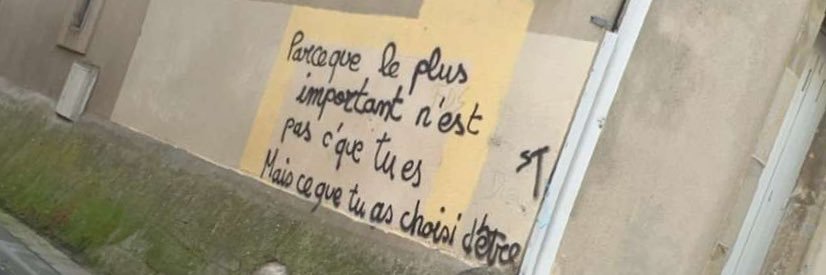 Parceque le plus
important n'est
pas c'que tu es
Mais ce que tu as choisi d'être
ST